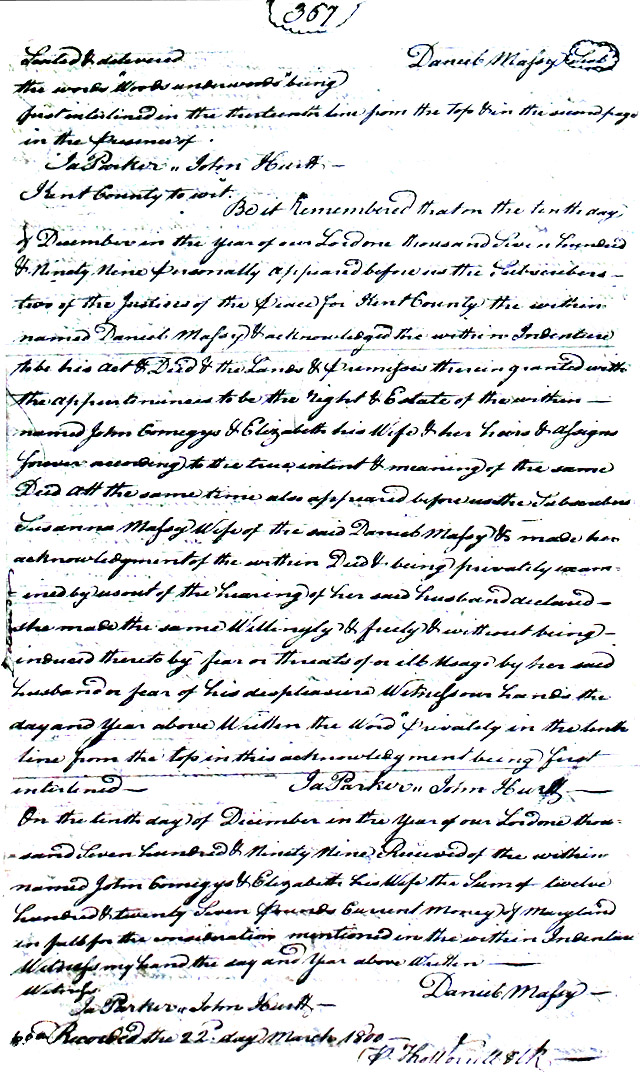 (367)
Sealed & delivered Daniel Massy Seal
the words "Woods underwoods" being
first interlined in the thirteenth line from the top & in the second page
in the presence of
Ja Parker „ John Hurtt —
Kent County to wit.
Be it Remembered that on the tenth day
of December in the Year of our Lord one thousand Seven hundred
& Ninety Nine Personally appeared before us the Subscribers —
two of the Justices of the Peace for Kent County the within
named Daniel Massy & acknowledged the within Indenture
to be his Act & Deed & the Lands & Premises therein granted with
the appurtinances to be the right & Estate of the within —
named John Comegys & Elizabeth his Wife & her heirs & assigns
forever according to the true intent & meaning of the same
Deed Att the same time also appeared before us the Subscribers
Susanna Massy Wife of the said Daniel Massy & made her
acknowledgment of the within Deed & being privately exam-
ined by us out of the hearing of her said husband declared —
she made the same Willingly & freely & without being —
induced thereto by fear or threats of or ill Usage by her said
husband or fear of his displeasure Witness our hands the
day and Year above Written the Word "Privately in the tenth
line from the top in this acknowledgment being first
interlined — Ja Parker „ John Hurtt —
On the tenth day of December in the Year of our Lord one thou-
sand Seven hundred & Ninety Nine Received of the within
named John Comegys & Elizabeth his Wife the Sum of twelve
hundred & twenty Seven Pounds Current Money of Maryland
in full for the consideration mentioned in the within Indenture
Witness my hand the day and Year above Written —
Witness Daniel Massy —
Ja Parker „ John Hurtt —
Recorded the 22d day March 1800 —